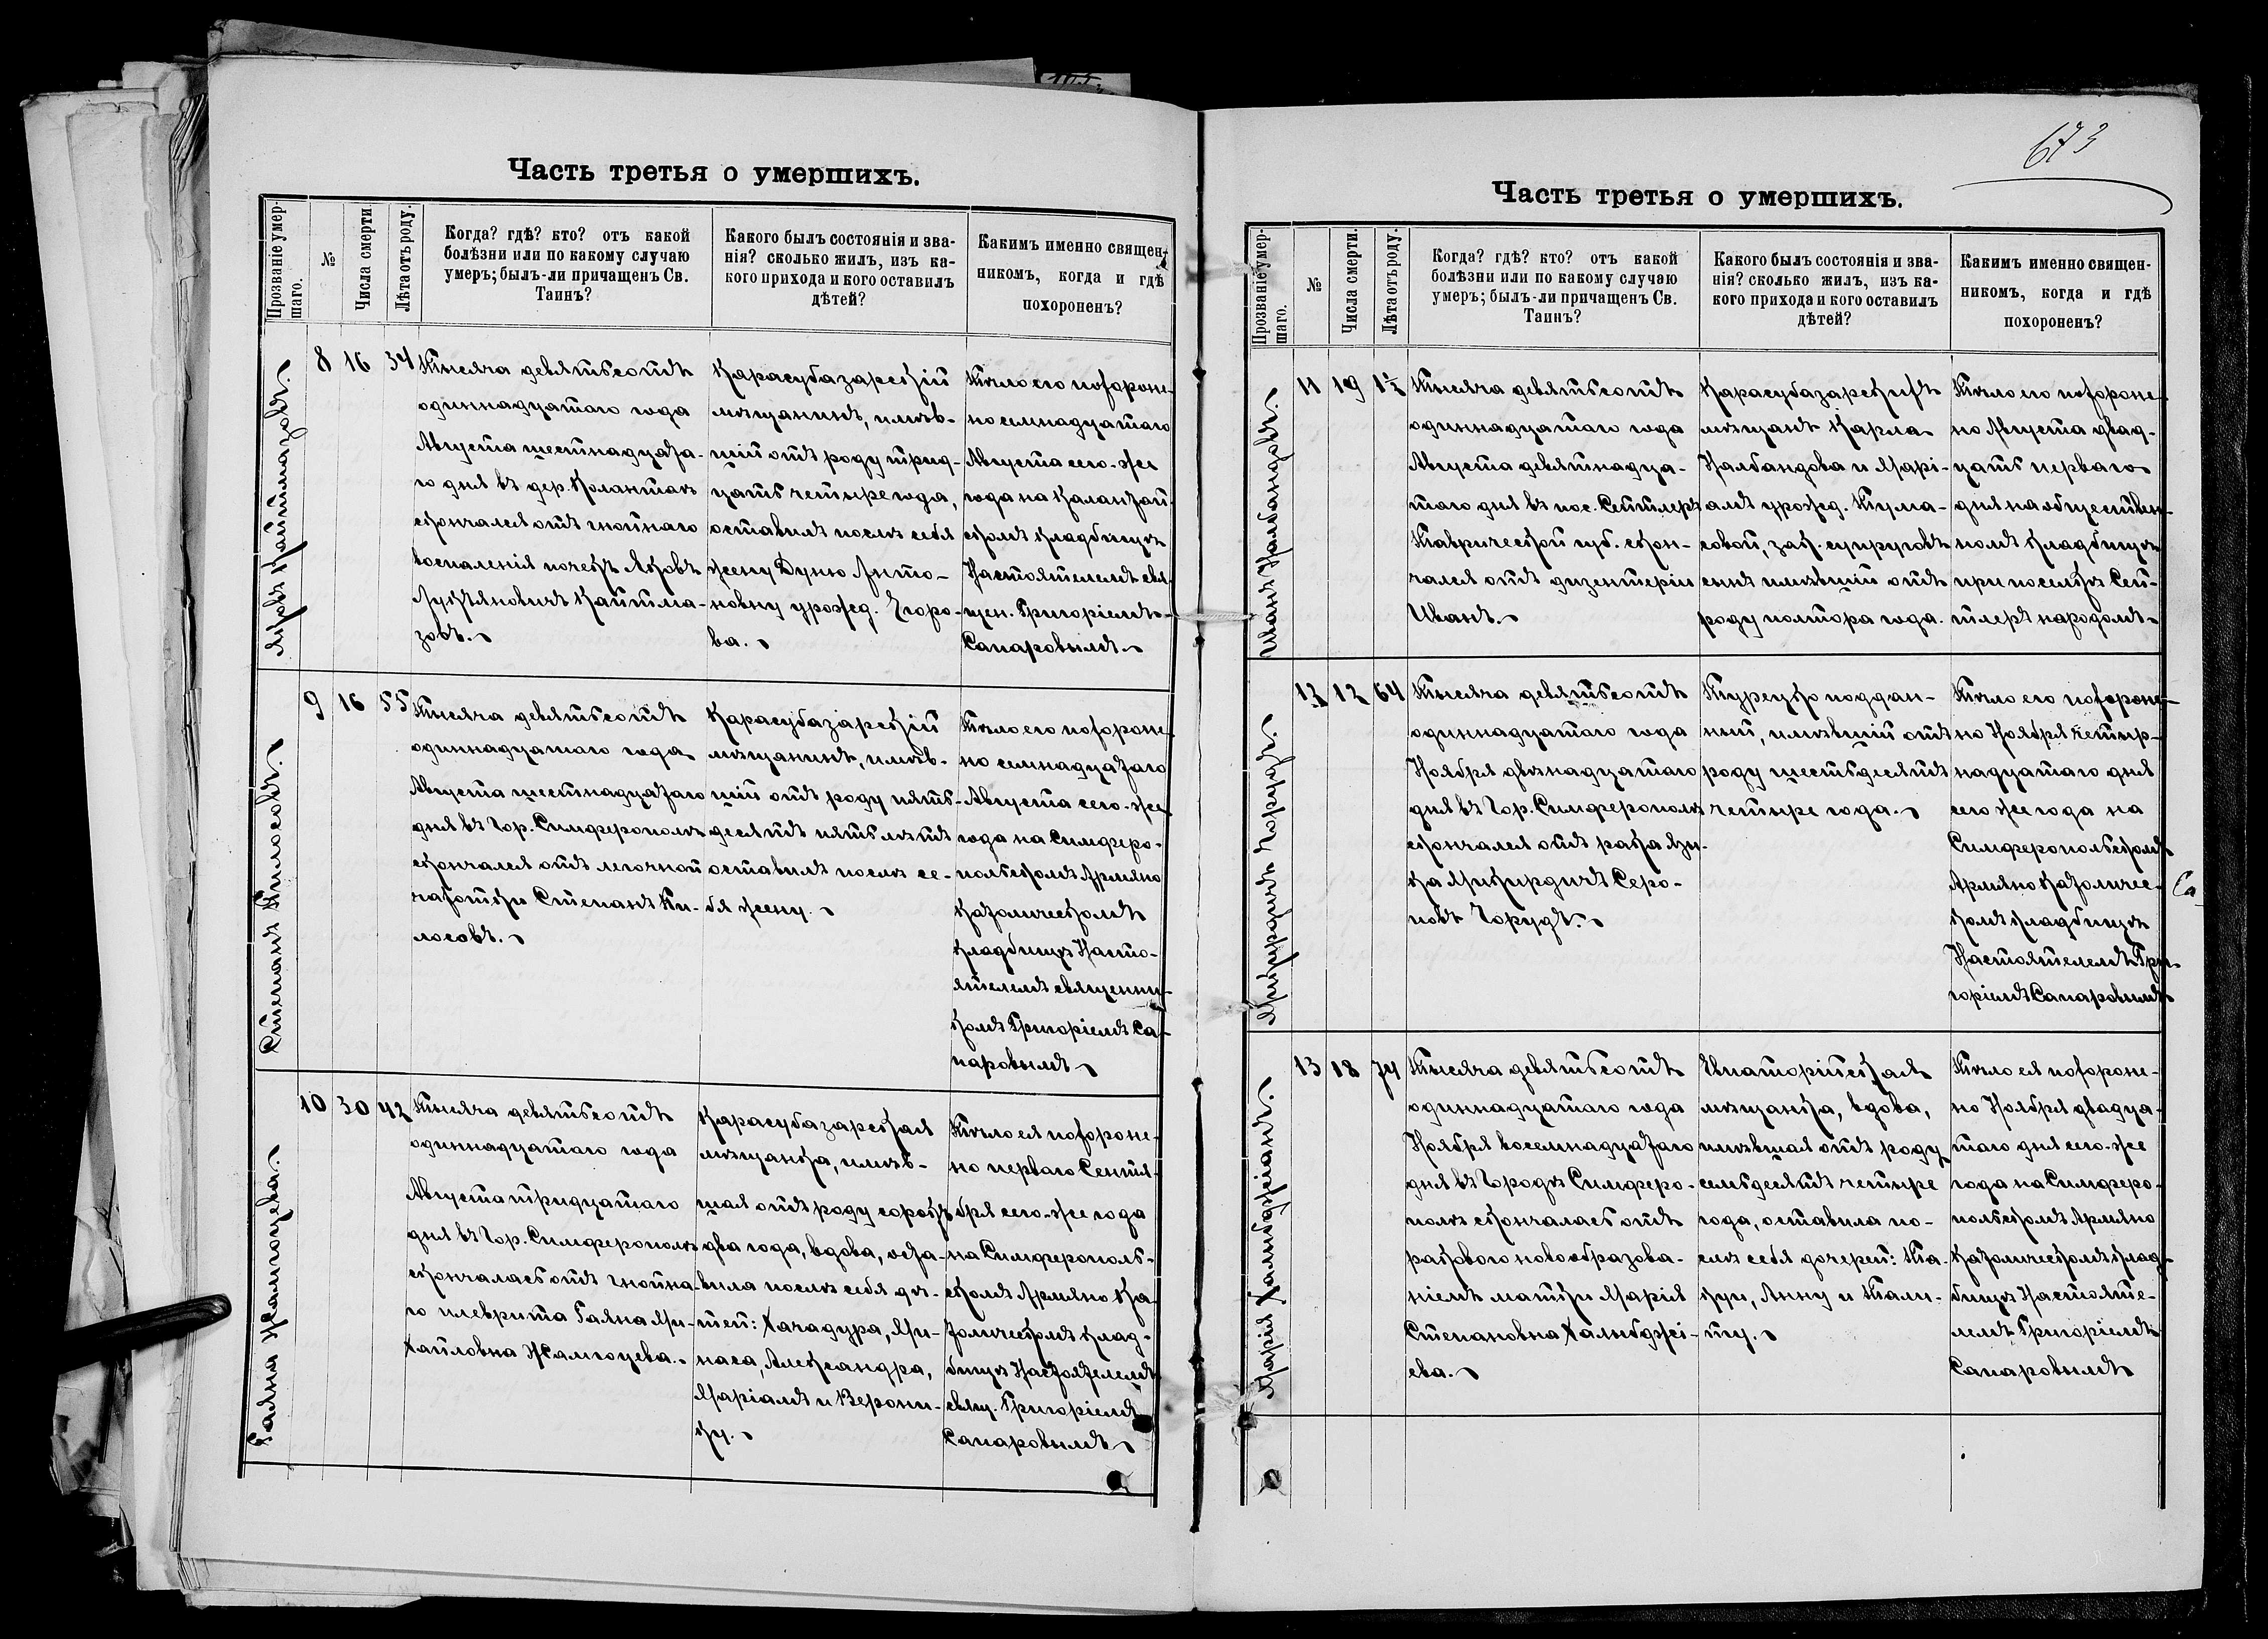 673
Часть третья о умершихъ.
Прозваніе умер-
шаго.
№
Числа смерти.
Лѣта отъ роду.
Когда? гдѣ? кто? отъ какой
болѣзни или по какому случаю
умеръ; былъ-ли причащенъ Св.
Таинъ?
Какого былъ состоянія и зва-
нія? сколько жилъ, изъ ка-
кого прихода и кого оставилъ
дѣтей?
Какимъ именно священ-
никомъ, когда и гдѣ
похороненъ?
Яковъ Кайтмазовъ.
8
16
34
Тысяча девятьсотъ
одиннадцатаго года
Августа шестнадцата-
го дня въ дер.
скончался отъ гнойнаго
воспаленія почекъ Яковъ
Лукъяновичъ Кайтма-
зовъ.
Карасубазарскій
мѣщанинъ, имѣв-
шій отъ роду трид-
цать четыре года,
оставилъ послѣ себя
жену Дуню Анто-
новну урожд. Егоро-
ва.
Тѣло его похороне-
но семнадцатаго
Августа сего-же
года на Калантай-
скомъ кладбищѣ
Настоятелемъ свя-
щен. Григоріемъ
Сапаровымъ.
Степанъ Килосовъ.
9
16
55
Тысяча девятьсотъ
одиннадцатаго года
Августа шестнадцатаго
дня въ гор. Симферополѣ
скончался отъ легочной
чахотки Степанъ Ки-
лосовъ.
Карасубазарскій
мѣщанинъ, имѣв-
шій отъ роду пять-
десятъ пять лѣтъ
оставилъ послѣ се-
бя жену.
Тѣло его похороне-
но семнадцатаго
Августа сего-же
года на Симферо-
польскомъ Армяно
католическомъ
кладбищѣ Насто-
ятелемъ священни-
комъ Григоріемъ Са-
паровымъ
Гаяна Жамгоцева.
10
30
42
Тысяча девятьсотъ
одиннадцатаго года
Августа тридцатаго
дня въ гор. Симферополѣ
скончалась отъ гнойна-
го плеврита Гаяна Ми-
хайловна Жамгоцева.
Карасубазарская
мѣщанка, имѣв-
шая отъ роду сорокъ
два года, вдова, оста-
вила послѣ себя дѣ-
тей: Хачадура, Ми-
наса, Александра,
Маріамъ и Верони-
ку.
Тѣло ея похороне-
но перваго Сентя-
бря сего-же года
на Симферополь-
скомъ Армяно Ка-
толическомъ клад-
бищѣ Настоятелемъ
свящ. Григоріемъ
Сапаровымъ
Часть третья о умершихъ.
Прозваніе умер-
шаго.
№
Числа смерти.
Лѣта отъ роду.
Когда? гдѣ? кто? отъ какой
болѣзни или по какому случаю
умеръ; былъ-ли причащенъ Св.
Таинъ?
Какого былъ состоянія и зва-
нія? сколько жилъ, изъ ка-
кого прихода и кого оставилъ
дѣтей?
Какимъ именно священ-
никомъ, когда и гдѣ
похороненъ?
Иванъ Налбандовъ.
11
19
1½
Тысяча девятьсотъ
одиннадцатаго года
Августа девятнадца-
таго дня въ пос. Сейтлеръ
Таврической губ. скон-
чался отъ дизентеріи
Иванъ.
Карасубазарскихъ
мѣщанъ Карпа
Налбандова и Марі-
амъ урожд. Тума-
совой, зак. супруговъ
сынъ имѣвшій отъ
роду полтора года.
Тѣло его похороне-
но Августа двад-
цать перваго
дня на обществен-
номъ кладбищѣ
при поселкѣ Сей-
тлеръ народомъ
Мкиртичъ Чорухъ.
12
12
64
Тысяча девятьсотъ
одиннадцатаго года
Ноября двѣнадцатаго
дня въ гор. Симферополѣ
скончался отъ рака язы-
ка Мкиртичъ Серо-
повъ Чорухъ.
Турецко поддан-
ный, имѣвшій отъ
роду шестьдесятъ
четыре года.
Тѣло его похороне-
но Ноября четыр-
надцатаго дня
сего же года на
Симферопольскомъ
Армяно Католичес-
комъ кладбищѣ
Настоятелемъ Гри-
горіемъ Сапаровымъ
Марія Халибджіанъ.
13
18
74
Тысяча девятьсотъ
одиннадцатаго года
Ноября восемнадцатаго
дня въ городѣ Симферо-
полѣ скончалась отъ
раковаго новообразова-
ніемъ матки Марія
Степановна Халибджі-
ева.
Евпаторійская
мѣщанка, вдова,
имѣвшая отъ роду
семьдесятъ четыре
года, оставила по-
слѣ себя дочерей:
Анну и
Тѣло ея похороне-
но Ноября двадца-
таго дня сего-же
года на Симферо-
польскомъ Армяно
Католическомъ клад-
бищѣ Настояте-
лемъ Григоріемъ
Сапаровымъ